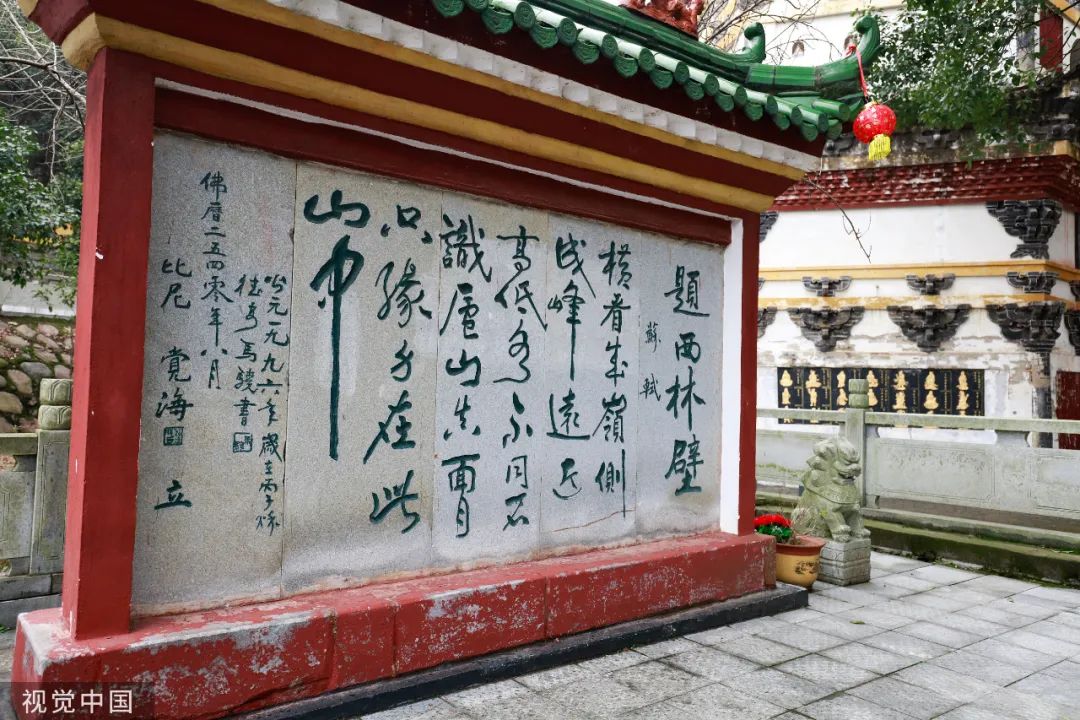 題西林壁
蘇軾
橫看成嶺側
成峰遠近
高低各不同不
識廬山真面目
只緣身在此
山中
公元一九九六年歲在丙子秋
馬 書
佛曆二五四零年八月
比尼 覺海 立
視覺中国